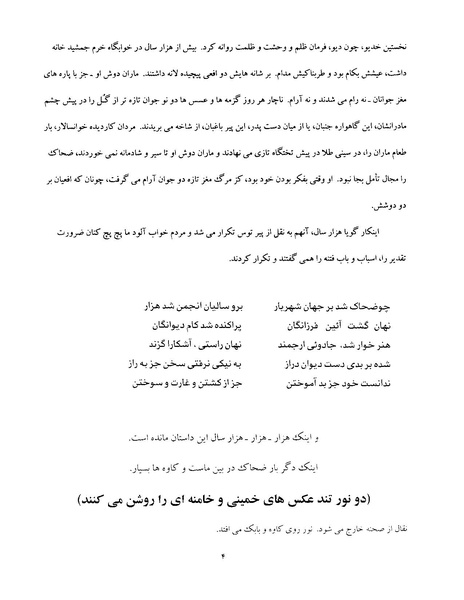 نخستین خدیو، چون دیو، فرمان ظلم و وحشت و ظلمت روانه کرد. بیش از هزار سال در خوابگاه خرم جمشید خانه
داشت، عیشش بکام بود و طربناکیش مدام. بر شانه هایش دو افعی پیچیده لانه داشتند. ماران دوش او ـ جز با پاره های
مغز جوانان ـ نه رام می شدند و نه آرام. ناچار هر روز گزمه ها و عسس ها دو نو جوان تازه تر از گُل را در پیش چشم
مادرانشان، این گاهواره جنبان، یا از میان دست پدر، این پیر باغبان، از شاخه می بریدند. مردان کاردیده خوانسالار، بار
طعام ماران را، در سینی طلا در پیش تختگاه تازی می نهادند و ماران دوش او تا سیر و شادمانه نمی خوردند، ضحاک
را مجال تأمل بجا نبود. او وقتی بفکر بودن خود بود، کز مرگ مغز تازه دو جوان آرام می گرفت، چونان که افعیان بر
دو دوشش.
اینکار گویا هزار سال، آنهم به نقل از پیر توس تکرار می شد و مردم خواب آلود ما پچ پچ کنان ضرورت
تقدیر را، اسباب و باب فتنه را همی گفتند و تکرار کردند.
چوضحاک شد بر جهان شهریار برو سالیان انجمن شد هزار
نهان گشت آئین فرزانگان پراکنده شد کام دیوانگان
هنر خوار شد. جادوئی ارجمند نهان راستی، آشکارا گزند
شده بر بدی دست دیوان دراز به نیکی نرفتی سخن جز به راز
ندانست خود جز بد آموختن جز از کشتن و غارت و سوختن
و اینک هزار ـ هزار ـ هزار سال این داستان مانده است.
اینک دگر بار ضحاک در بین ماست و کاوه ها بسیار.
(دو نور تند عکس های خمینی و خامنه ای را روشن می کنند)
نقال از صحنه خارج می شود. نور روی کاوه و بابک می افتد.